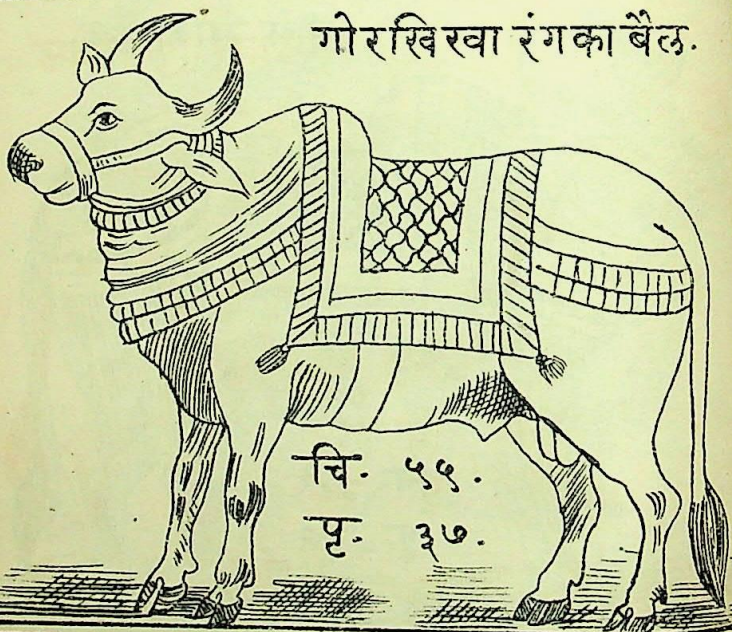 गोरखिरवा रंगका बैल.
चि. ५५.
पृ. ३७.